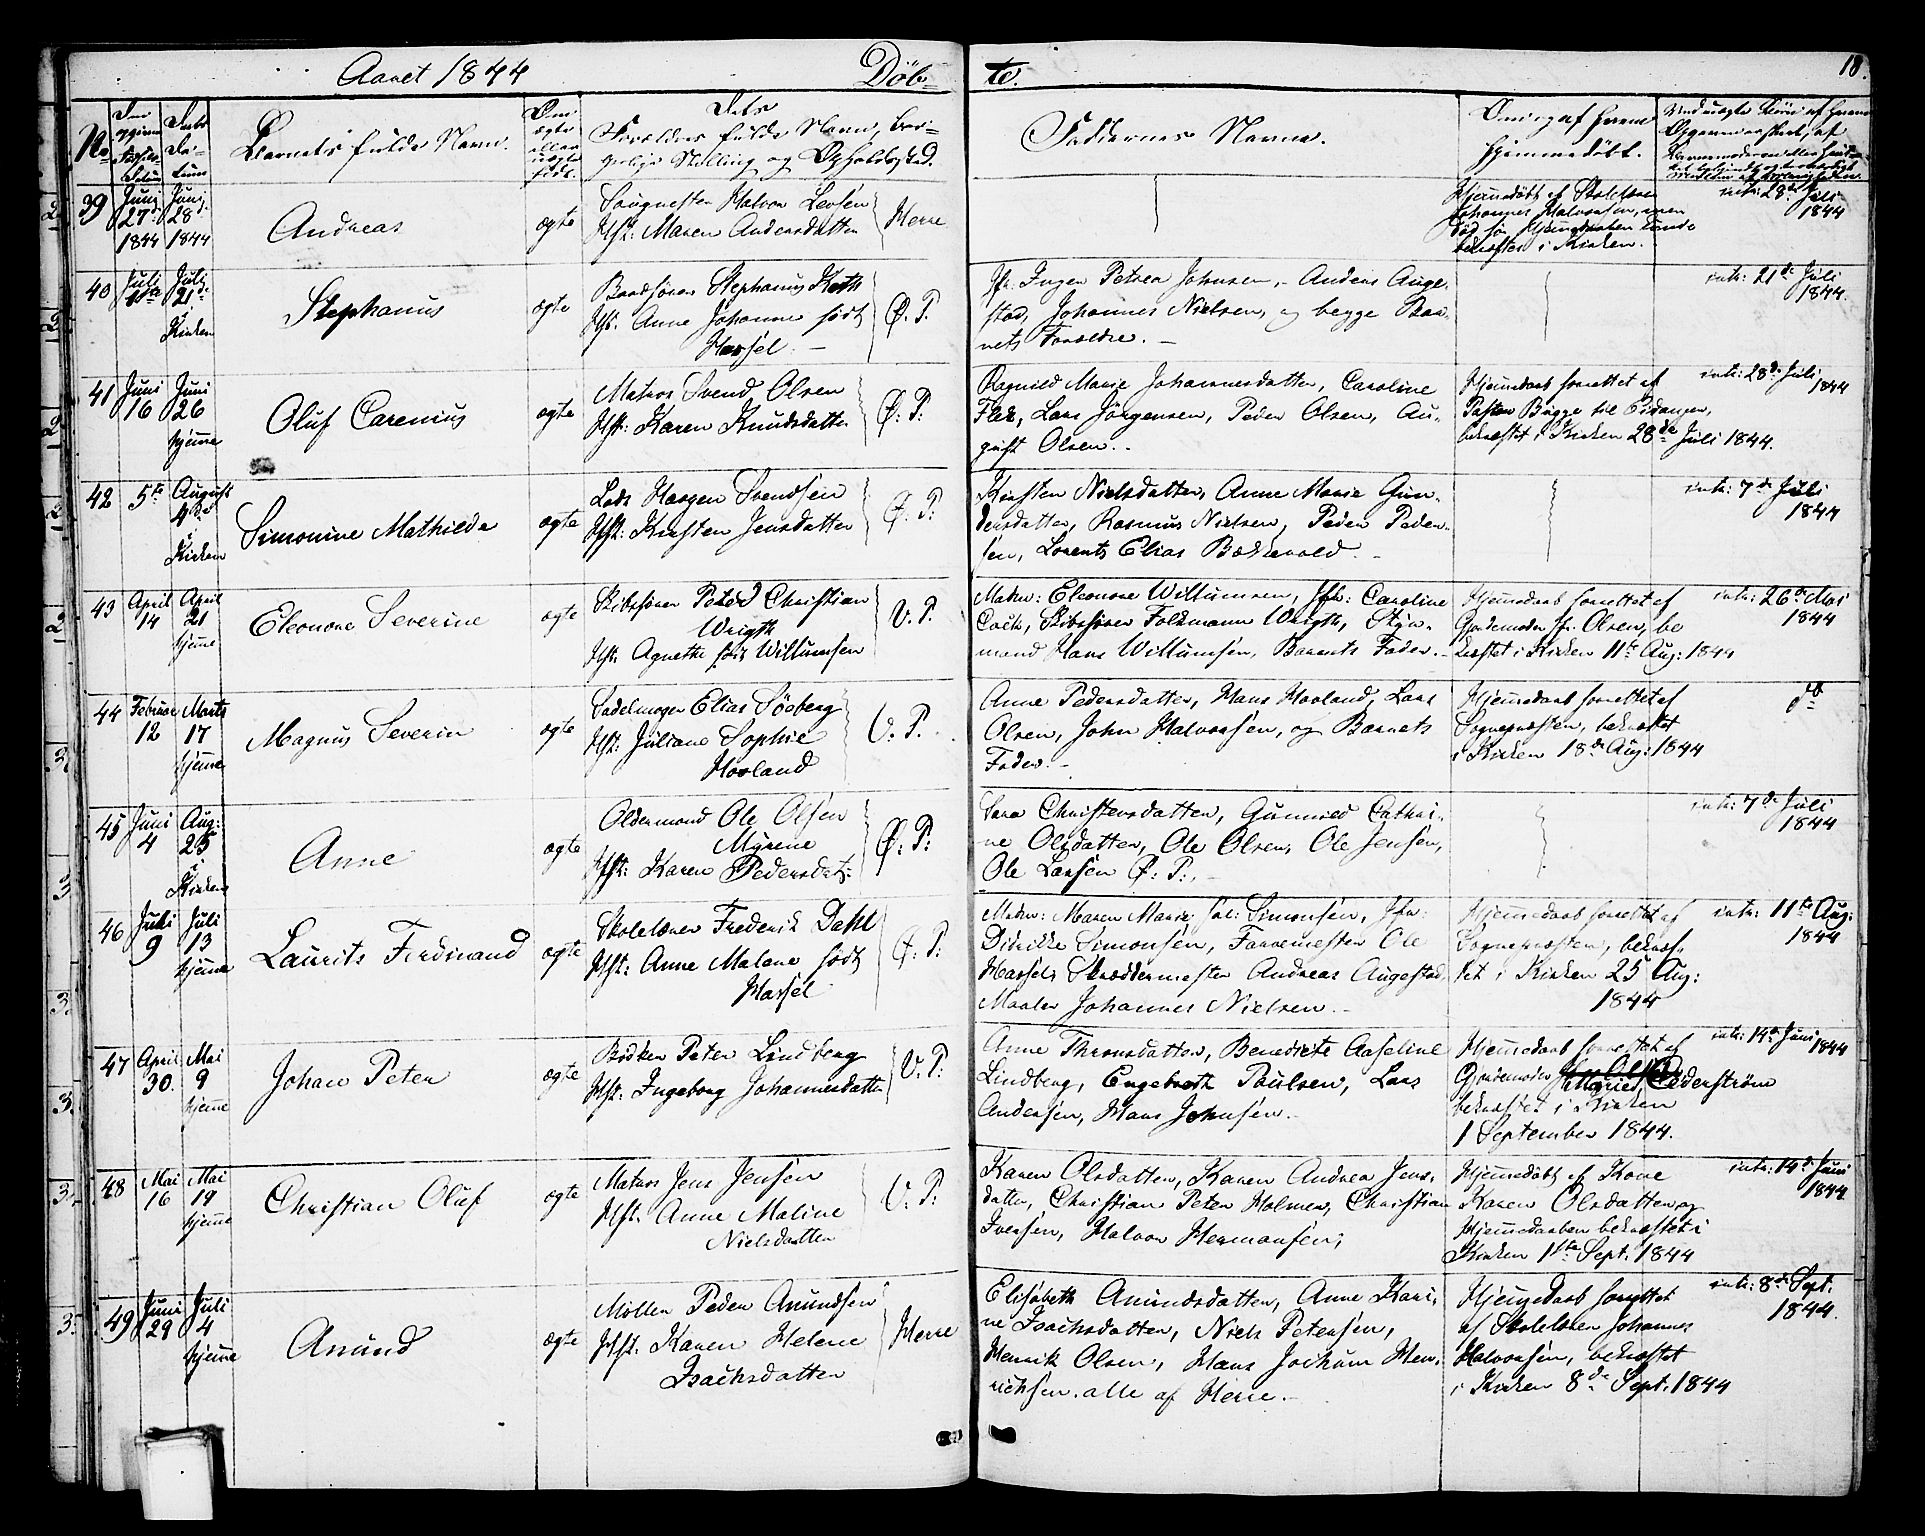 Aaret 1844 Døb= te. 18.
No
Barnets fulde Navn.
Om ægte eller uægte født.
Dets Forældres fulde Navn, bor=
gerlige Stilling og Opholdssted.
Faddernes Navne.
hjemmedøbt.
39 Juni 27de 1844
Juni 28 1844
Andreas
ægte
Halvor
Hst: Maren Andersdatter
Herre
Hjemmedøbt af Skolelærer
Johannes Halvorsen, men
død før Hjemmedaaben kunde
bekræftes i Kirken.
intr: 28de Juli
1844
40 Juli
Juli 21de i Kirken
Stephanus
ægte
Stephanus
Hst. Anne Johanne født
Hassel.
Ø. P.
Jfr. Inger Petrea Johnsen, Anders Auge-
stad, Johannes Nielsen, og begge Bar-
nets Forældre.
intr: 21de Juli
1844.
41 Juni 16
Juni 26 hjemme
Oluf Carenius
ægte
Matros Svend Olsen
Hst: Karen Knudsdatter
Ø: P:
Ragnild Marie Johannesdatter, Caroline
Flex, Lars Jörgensen, Peder Olsen, Au-
gust Olsen.
Hjemmedaab forrettet af
Pastor Bugge til Eidanger,
bekræftet i Kirken 28de Juli 1844.
intr: 28de Juli
1844
42 5te
August 4de i Kirken
Simonine Mathilde
ægte
Lods Haagen Svendsen
Hst: Kirsten Jensdatter
Ø. P:
Kirsten Nielsdatter, Anne Marie Gun-
dersdatter, Rasmus Nielsen, Peder Peder-
sen, Lorents Elias Bækkevold.
intr: 7de Juli
1844
43 April 14
April 21 hjemme
Eleonore Severine
ægte
Skibsfører Peter Christian
Wrigth
Hst: Agnethe født Willumsen
V. P.
Mad: Eleonore Willumsen, Jfr: Caroline
Coch, Skibsfører Folkmann Wrigth, Styr-
mand Hans Willumsen, Barnets Fader.
Hjemmedaab forrettet af
Gjordemoder fr. Olsen, be
kræftet i Kirken 11te Aug: 1844
intr: 26de Mai
1844
44 Februar 12
Marts 17 hjemme
Magnus Severin
ægte
Sadelmager Elias Söeberg
Hst: Juliane Sophie
Hovland
V. P.
Anne Pedersdatter, Hans Hovland, Lars
Olsen, John Halvorsen, og Barnets
Fader.
Hjemmedaab forrettet af
Sognepræsten, bekræftet
i Kirken 18de Aug: 1844
do
45 Juni 4
Aug: 25 i Kirken
Anne
ægte
Oldermand Ole Olsen
Myrene
Hst: Karen Pedersdat:
Ø: P:
Sara Christensdatter, Gunnild Cathri-
ne Olsdatter, Ole Olsen, Ole Jensen,
Ole Larsen Ø: P:
intr: 7de Juli
1844
46 Juli 9
Juli 13 hjemme
Laurits Ferdinand
ægte
Skolelærer Frederik Dahl
Hst: Anne Malene født
Hassel
Ø: P:
Madm: Maren Marie Simonsen, Jfr:
Didrikke Simonsen, Farvemester Ole
Hassel, Skræddermester Andreas Augestad
Maaler Johannes Nielsen.
Hjemmedaab forrettet af
Sognepræsten, bekræf-
tet i Kirken 25 Aug:
1844
intr: 11te Aug:
1844
47 April 30.
Mai 9 hjemme
Johan Peter
ægte
Bödker Peter Lindberg
Hst: Ingeborg Johannesdatter
V: P:
Anne Thronsdatter, Benedicte Aaseline
Lindberg, Engebreth Paulsen, Lars
Andersen, Hans Johnsen.
Hjemmedaab forrettet af
Gjordemoder Cederström
bekræftet i Kirken
1 September 1844.
intr: 14de Juni
1844
48 Mai 16
Mai 19 hjemme
Christian Oluf
ægte
Matros Jens Jensen
Hst. Anne Maline
Nielsdatter
V: P:
Karen Olsdatter, Karen Andrea Jens-
datter, Christian Peter Holmer, Christian
Iversen, Halvor Hermansen,
Hjemmedøbt af Kone
Karen Olsdatter, og
Hjemmedaaben bekræftet i
Kirken 1ste Sept: 1844
intr: 14de Juni
1844.
49 Juni 29
Juli 4 hjemme
Amund
ægte
Møller Peder Amundsen
Hst. Karen Helene
Isachsdatter
Herre
Elisabeth Amundsdatter, Anne Kari-
ne Isachsdatter, Niels Petersen,
Henrik Olsen, Hans Jochum Hen-
richsen. alle af Herre.
Hjemmedaab forrettet
af Skolelærer Johannes
Halvorsen, bekræftet
i Kirken 8de Sept. 1844
intr: 8de Sept.
1844.